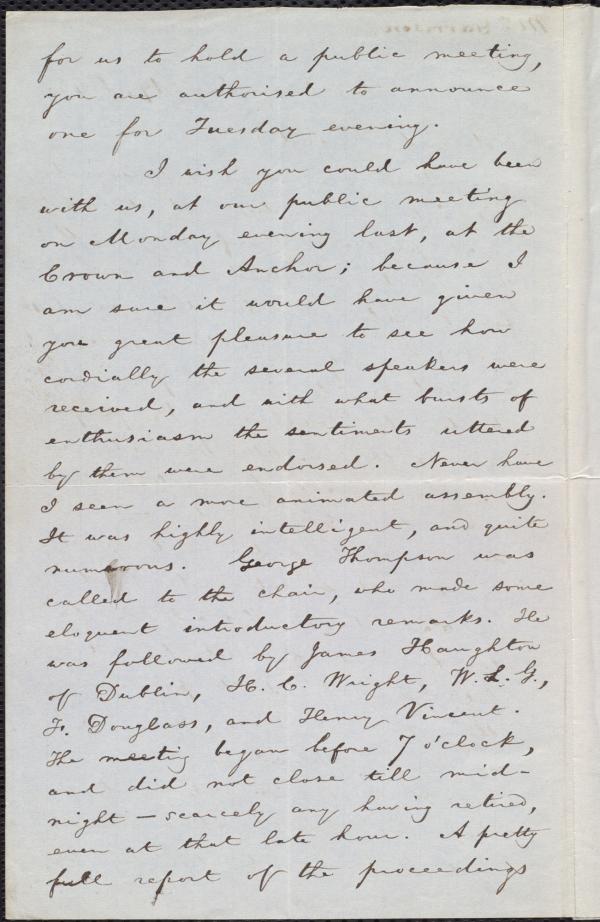 for us to hold a public meeting,
you are authorised to announce
one for Tuesday evening.
I wish you could have been
with us, at our public meeting
on Monday evening last, at the
Crown and Anchor; because I
am sure it would have given
you great pleasure to see how
cordially the several speakers were
received, and with what bursts of
enthusiasm the sentiments uttered
by them were endorsed. Never have
I seen a more animated assembly.
It was highly intelligent, and quite
numerous. George Thompson was
called to the chair, who made some
eloquent introductory remarks. He
was followed by James Haughton
of Dublin, H. C. Wright, W. L. G.,
F. Douglass, and Henry Vincent.
The meeting began before 7 o'clock,
and did not close till mid-
night – scarcely any having retired,
even at that late hour. A pretty
full report of the proceedings